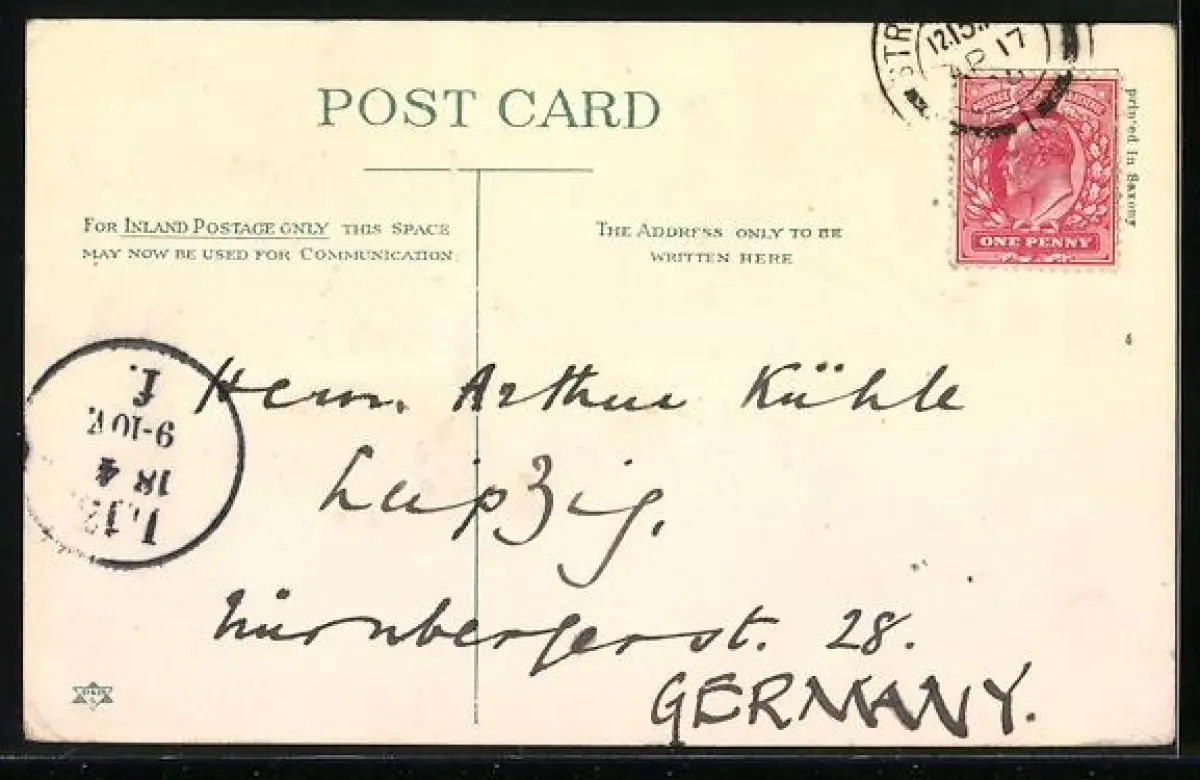 POST CARD
FOR INLAND POSTAGE ONLY THIS SPACE
MAY NOW BE USED FOR COMMUNICATION
THE ADDRESS ONLY TO BE
WRITTEN HERE
AP 17
ONE PENNY
printed in Saxony
4
Herrn. Arthur Kühle
Leipzig.
Nürnbergerst. 28.
GERMANY.
9-10 V.
18 4